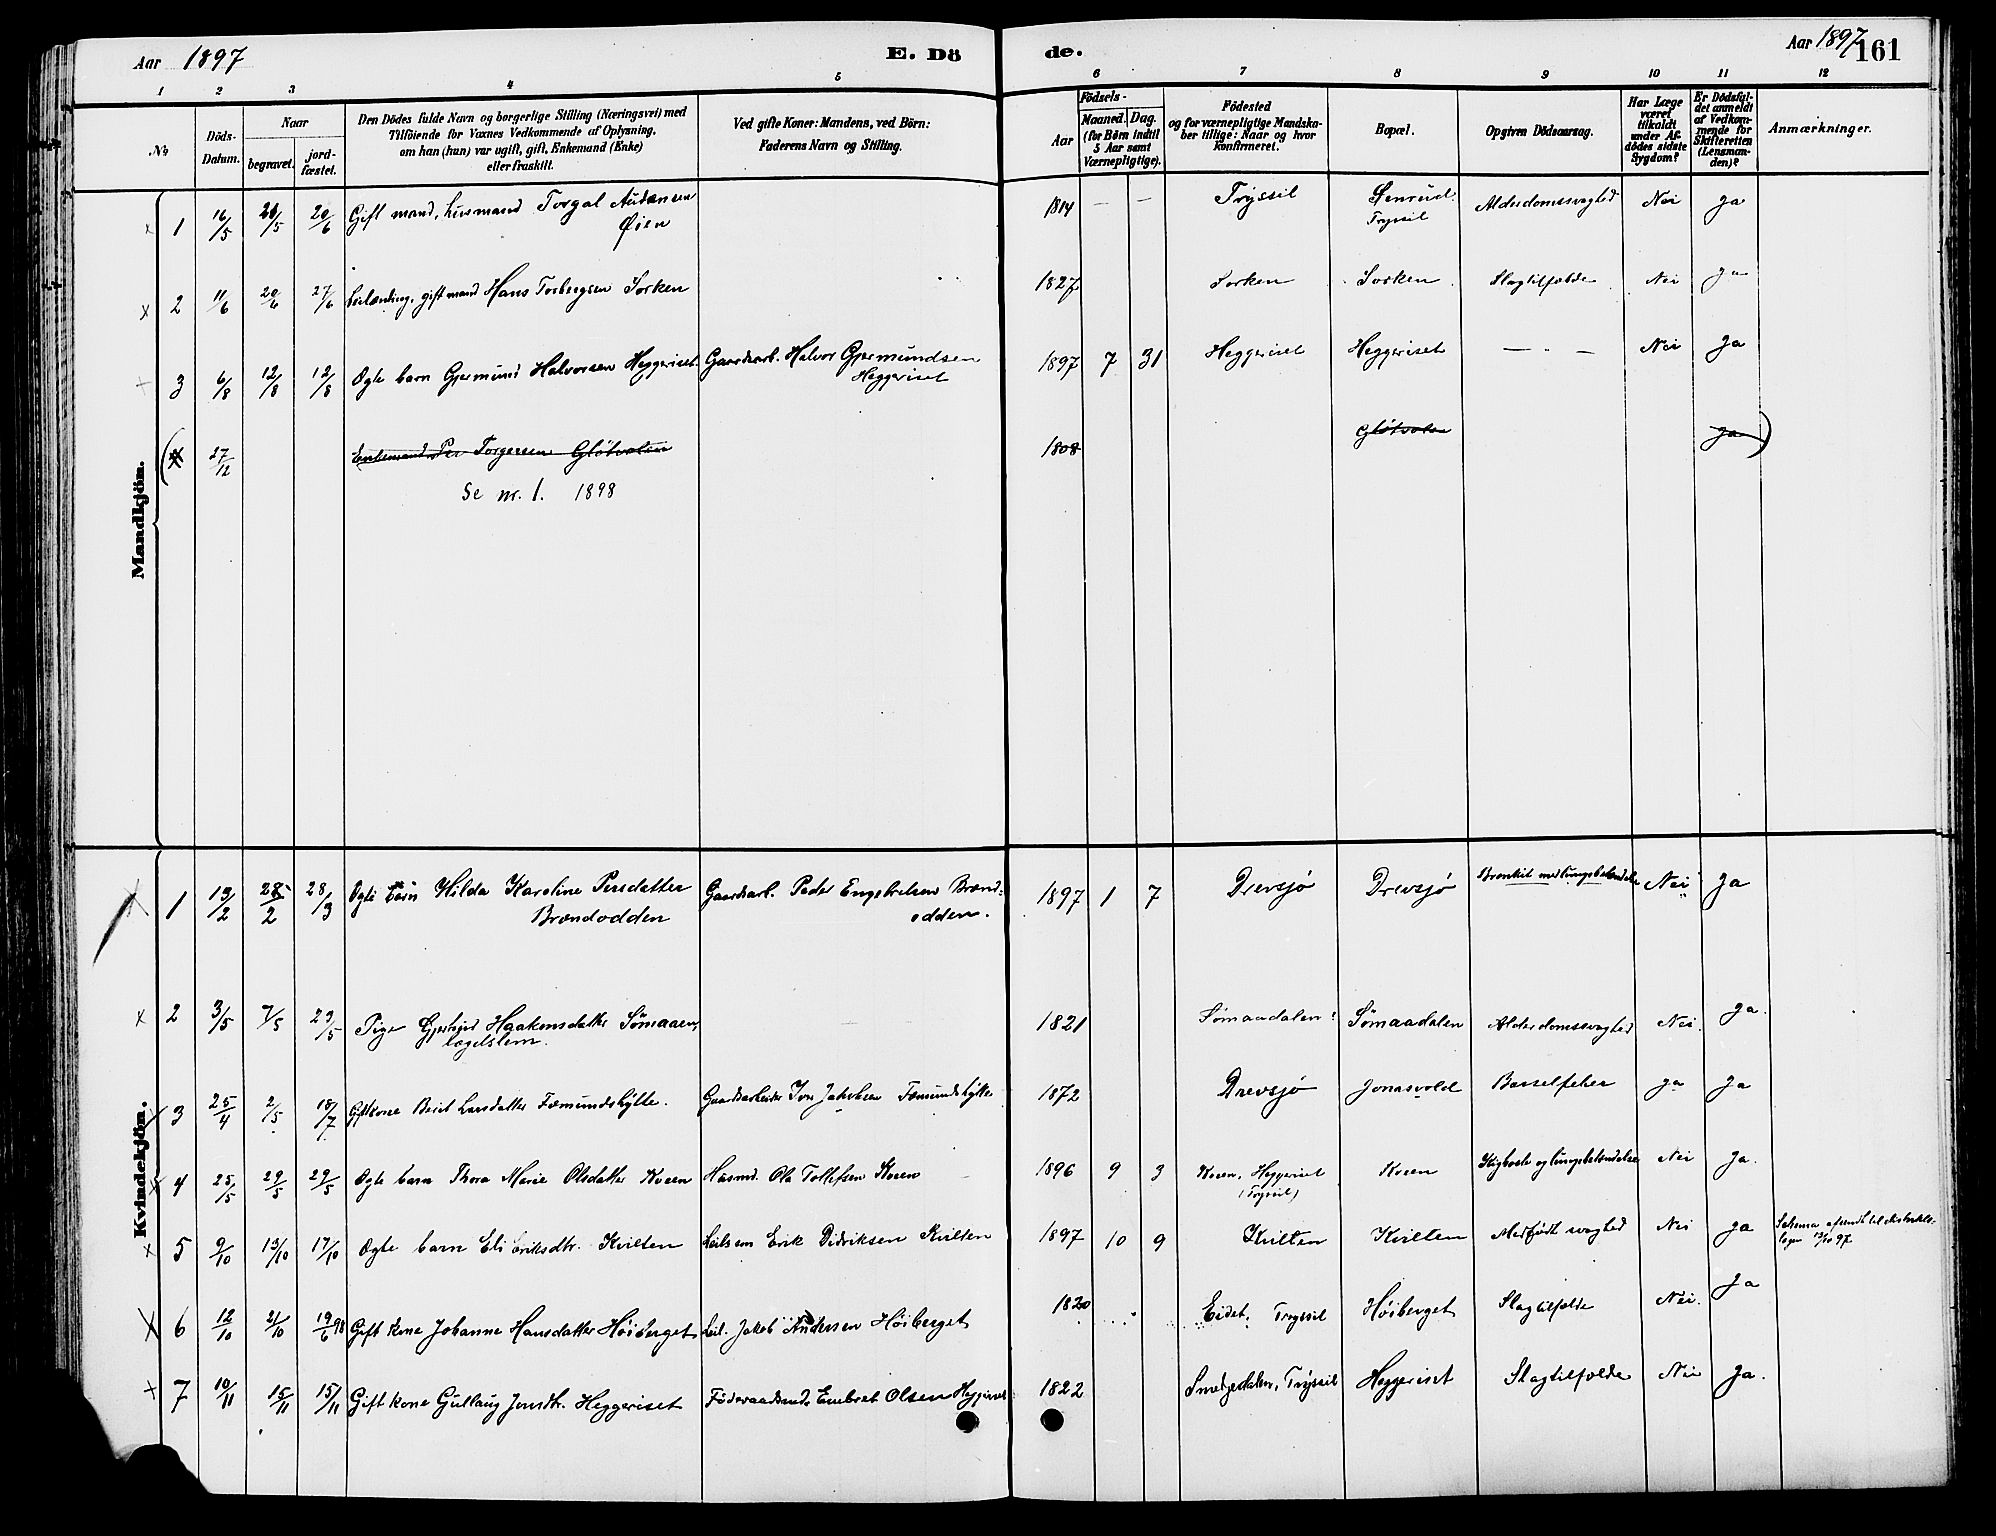 Aar 1897
E. Dö
de.
Aar 1897
161
1 2 3 4 5 6 7 8 9 10 11 12
№
Döds-
Datum.
Naar
begravet.
jord-
fæstet.
Den Dödes fulde Navn og borgerlige Stilling (Næringsvei) med
Tilföiende for Voxnes Vedkommende af Oplysning,
om han (hun) var ugift, gift, Enkemand (Enke)
eller fraskilt.
Ved gifte Koner: Mandens, ved Börn:
Faderens Navn og Stilling.
Födsels-
Aar
Maaned. Dag.
(for Börn indtil
5 Aar samt
Værnepligtige).
Födested
og for værnepligtige Mandska-
ber tillige: Naar og hvor
Konfirmeret.
Bopæl.
Opgiven Dödsaarsag.
Har Læge
været
tilkaldt
under Af-
dödes sidste
Sygdom?
Er Dödsfal-
det anmeldt
af Vedkom-
mende for
Skifteretten
(Lensman-
den)?
Anmærkninger.
Mandkjön.
1 16/5 20/6 Gift mand, husmand Torgal Audensen 1814 — — Trysil Alderdomssvaghed Nei Ja
Øien Trysil
2 11/6 20/6 27/6 Leilænding, gift mand Hans Torbergsen Sorken 1827 Sorken Sorken Slagtilfælde Nei Ja
3 6/8 12/8 12/8 Ægte barn Gjermund Halvorsen Heggeriset Gaardsarb. Halvor Gjermundsen 1897 7 31 Heggeriset Heggeriset — " — Nei Ja
Heggeriset
(4 27/12 Enkemand Per Torgersen Glötvolen 1808 Glötvolen Ja)
Se nr. 1. 1898
Kvindekjön.
1 13/2 28/2 28/3 Ægte barn Hilda Karoline Persdatter Gaardsarb. Peder Engebretsen Brænd- 1897 1 7 Drevsjø Drevsjø Bronkit med lungebetændelse Nei Ja
Brændodden odden.
2 3/5 7/5 23/5 Pige Haakensdatter Sömaaen, 1821 Sömaadalen Sömaadalen Alderdomssvaghed Nei. Ja.
lægdslem.
3 25/4 2/5 18/7 Gift kone Berit Larsdatter Fæmundshytte. Gaardsarbeider Iver Jakobsen Fæmundshytte 1872 Drevsjø Jonasvold Barselfeber Ja Ja
4 25/5 29/5 29/5 Ægte barn Thora Marie Olsdatter Kveen Husmd. Ola Tollefsen Kveen 1896 9 3 Kveen, Heggeriset Kveen Kighoste og lungebetændelse Nei Ja.
(Trysil)
5 9/10 13/10 17/10 Ægte barn Eli Eriksdtr. Kvilten Leilænd. Erik Didriksen Kvilten 1897 10 9 Kvilten Kvilten Medfødt svaghed Nei Ja Schema afsendt til distrikts-
lægen 13/10 97
6 12/10 21/10 19/6 98 Gift kone Johanne Hansdatter Höiberget Leil. Jakob Andersen Höiberget 1820 Eidet, Trysil Höiberget Slagtilfælde Nei. Ja
7 10/11 15/11 15/11 Gift kone Gullaug Jonsdtr. Heggeriset Föderaadsmd. Embret Olsen Heggeriset 1822 Trysil Heggeriset Slagtilfælde Nei Ja.